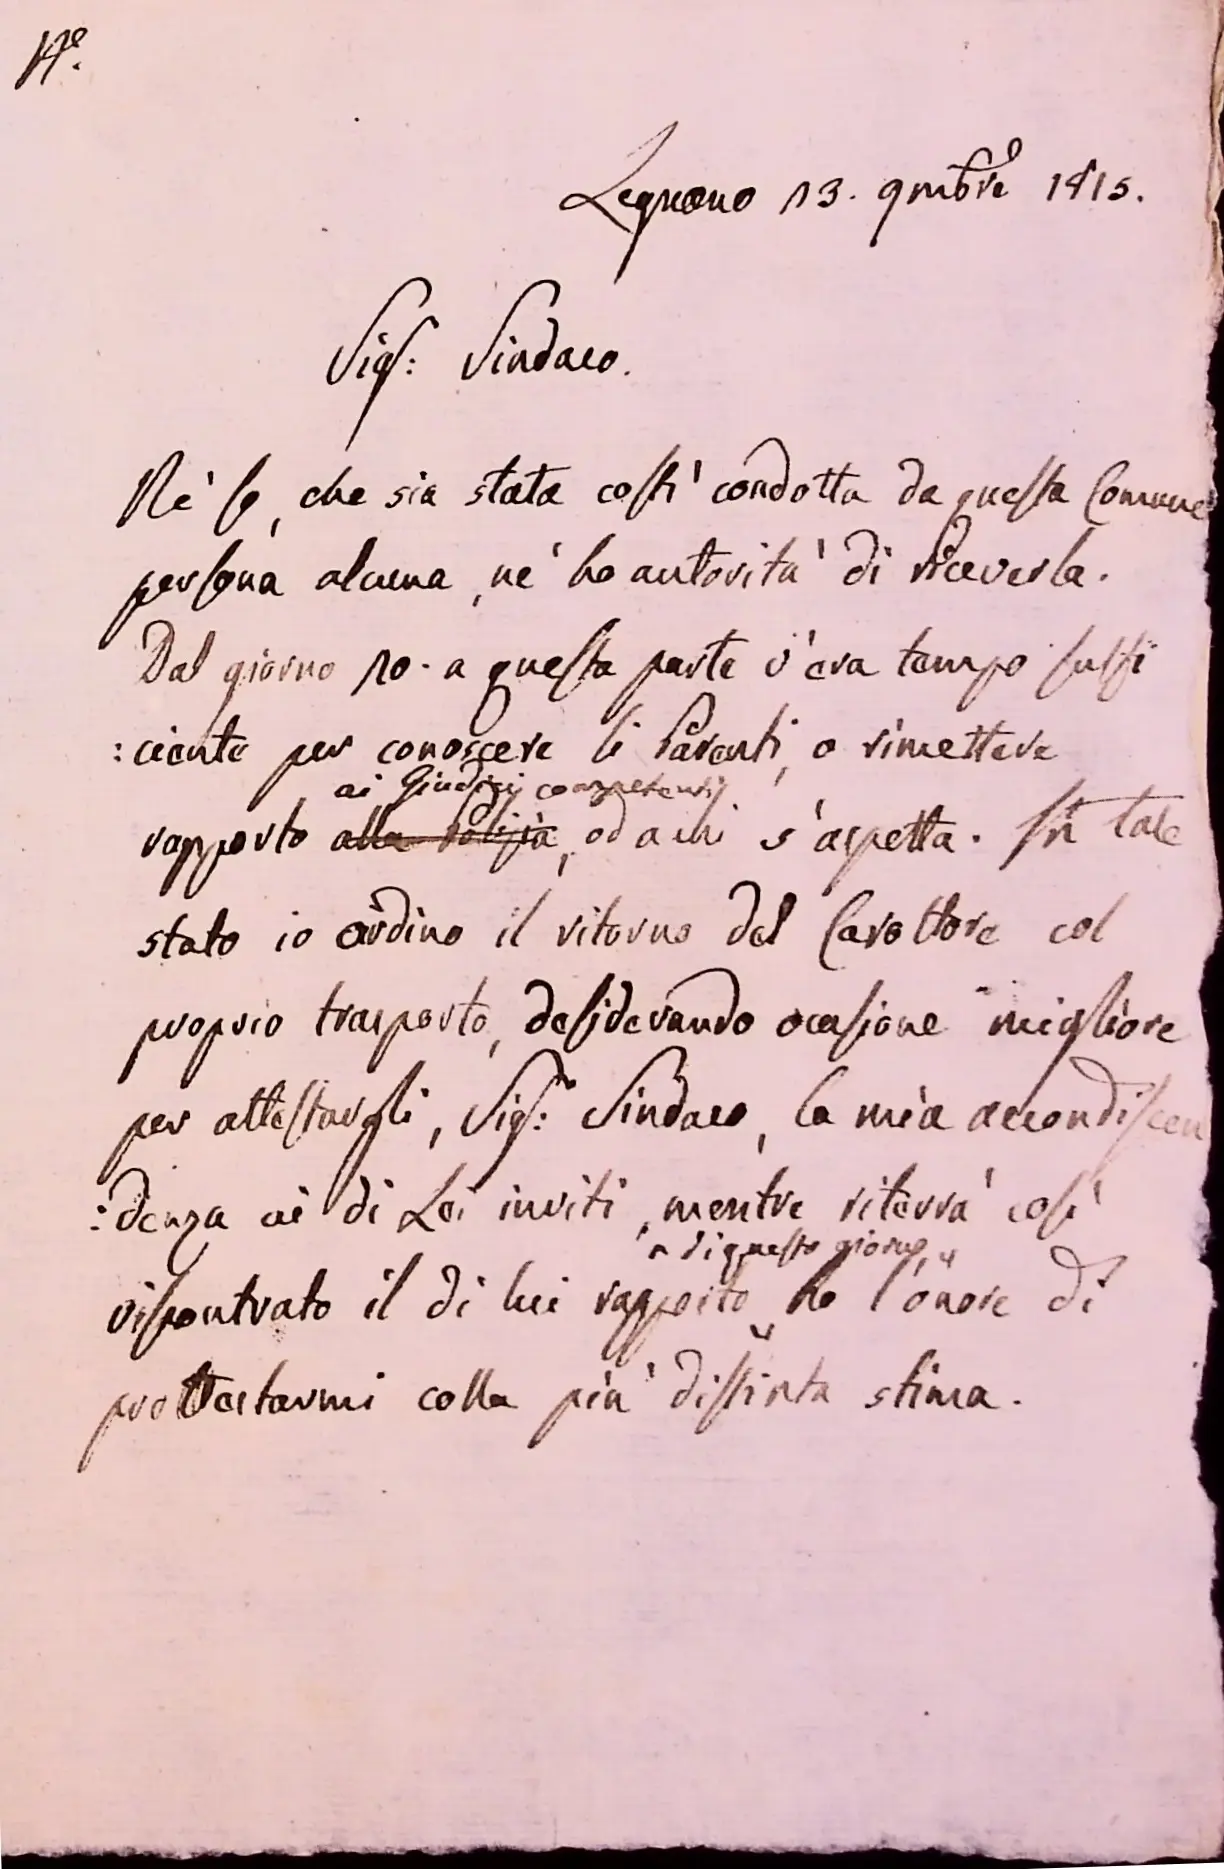 N.º
Legnano 13. 9mbrẽ 1815.
Sigʳ: Sindaco.
Nè so, che sia stata costì condotta da questa Comune
persona alcuna, nè ho autorità di riceverla.
Dal giorno 10. a questa parte v'era tempo suffi
:ciente per conoscere li Parenti, o rimettere
ai Giudizj competenti,
rapporto alla Polizia, od a chi s'aspetta. In tale
stato io ordino il ritorno del Carettore col
proprio trasporto, desiderando ocasione migliore
per attestargli, Sigʳ: Sindaco, la mia accondiscen
:denza ai di Lei inviti, mentre riterrà così
di questo giorno,
riscontrato il di lui rapporto ho l'onore di
prottestarmi colla più distinta stima.